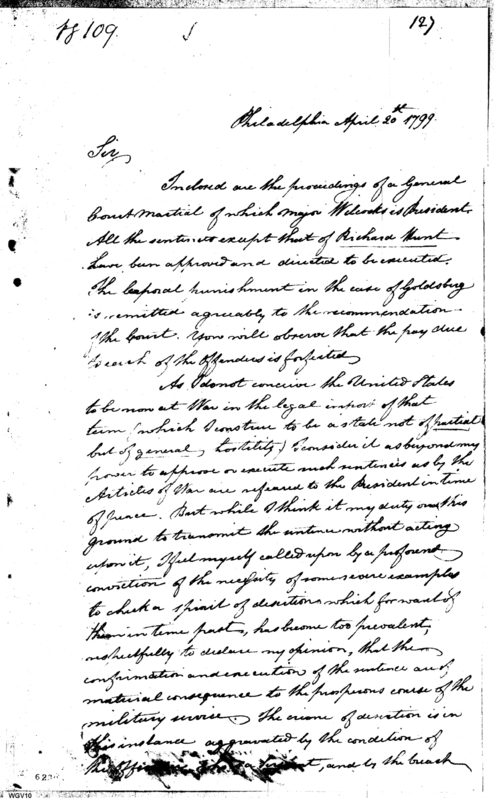 pg 109. 127
Philadelphia April 20th 1799
Sir,
Inclosed are the proceedings of a General
Court Martial of which Major Wilcocks is President.
All the sentences except that of Richard Hunt
have been approved and directed to be executed.
The Corporal punishment in the case of Goldsburg
is remitted agreeably to the recommendation
of the Court. You will observe that the pay due
to each of the Offenders is forfeited
As I do not conceive the United States
to be now at War in the legal import of that
term (which I construe to be a state not of partial
but of general hostility) I consider it as beyond my
power to approve or execute such sentences as by the
Articles of War are referred to the President in time
of peace. But while I think it my duty on this
ground to transmit the sentence without acting
upon it, I feel myself called upon by a profound
conviction of the necessity of some severe examples
to check a spirit of desertion which for want of
them in time past, has become too prevalent,
respectfully to declare my opinion, that the
confirmation and execution of the sentence are of
material consequence to the prosperous course of the
military service. The crime of desertion is in
this instance aggravated by the condition of
the and by the breach
623
WGV10